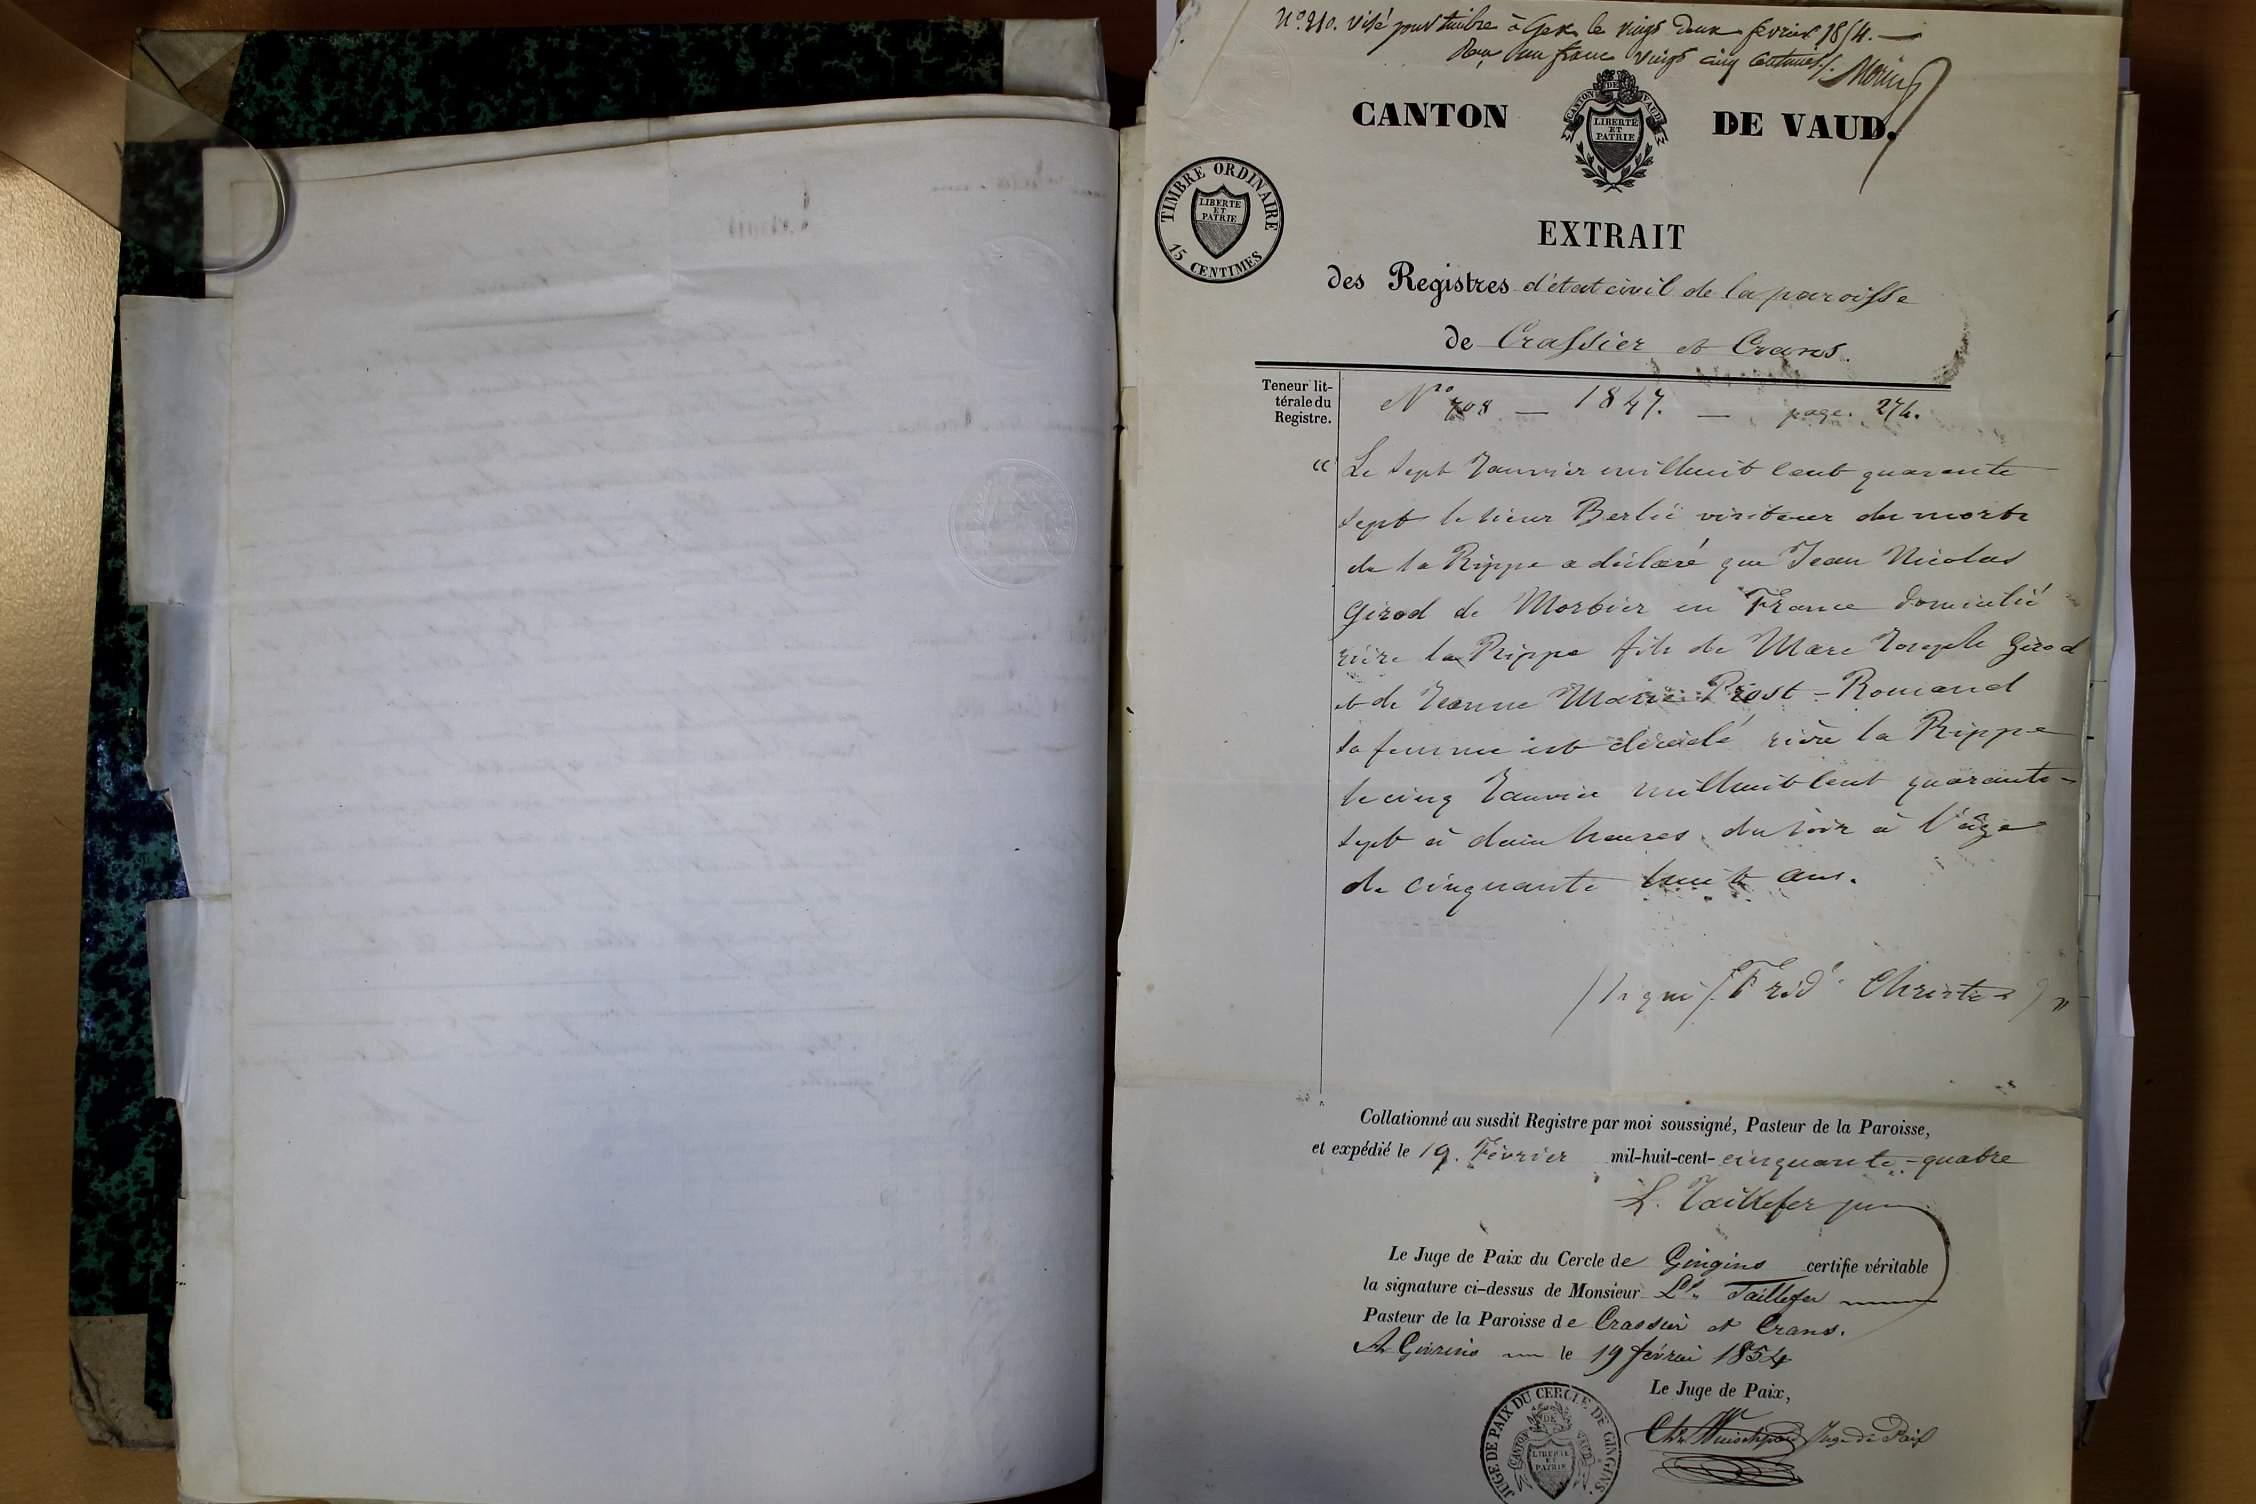 N° 210. visé pour timbre à Gex le vingt deux février 1854. —
Reçu un franc vingt cinq centimes /.
CANTON DE VAUD.
CANTON DE VAUD
LIBERTÉ
ET
PATRIE
TIMBRE ORDINAIRE
LIBERTE
ET
PATRIE
15 CENTIMES
EXTRAIT
des Registres d'état civil de la paroisse
de Crassier et Crans.
Teneur lit-
térale du
Registre.
N° 708 — 1847. — page. 274.
« Le sept Janvier mil huit cent quarante
sept le sieur Berlie visiteur des morts
de la Rippe a déclaré que Jean Nicolas
Girod de Morbier en France domicilié
rière la Rippe fils de Marc Joseph Girod
et de Jeanne Marie Prost-Romand
sa femme est décédé rière la Rippe
le cinq Janvier mil huit cent quarante-
sept à deux heures du soir à l'âge
de cinquante huit ans.
/signé/ Fréd. Christin) »
Collationné au susdit Registre par moi soussigné, Pasteur de la Paroisse,
et expédié le 19. Février mil-huit-cent-cinquante-quatre
L. Taillefer
Le Juge de Paix du Cercle de Gingins certifie véritable
la signature ci-dessus de Monsieur Ls. Taillefer
Pasteur de la Paroisse de Crassier et Crans.
A Givrins le 19 février 1854
Le Juge de Paix,
Juge de Paix
JUGE DE PAIX DU CERCLE DE GINGINS.
CANTON DE VAUD
LIBERTE
ET
PATRIE